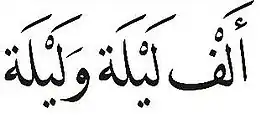 أَلْفُ لَيْلَة وَلَيْلَة